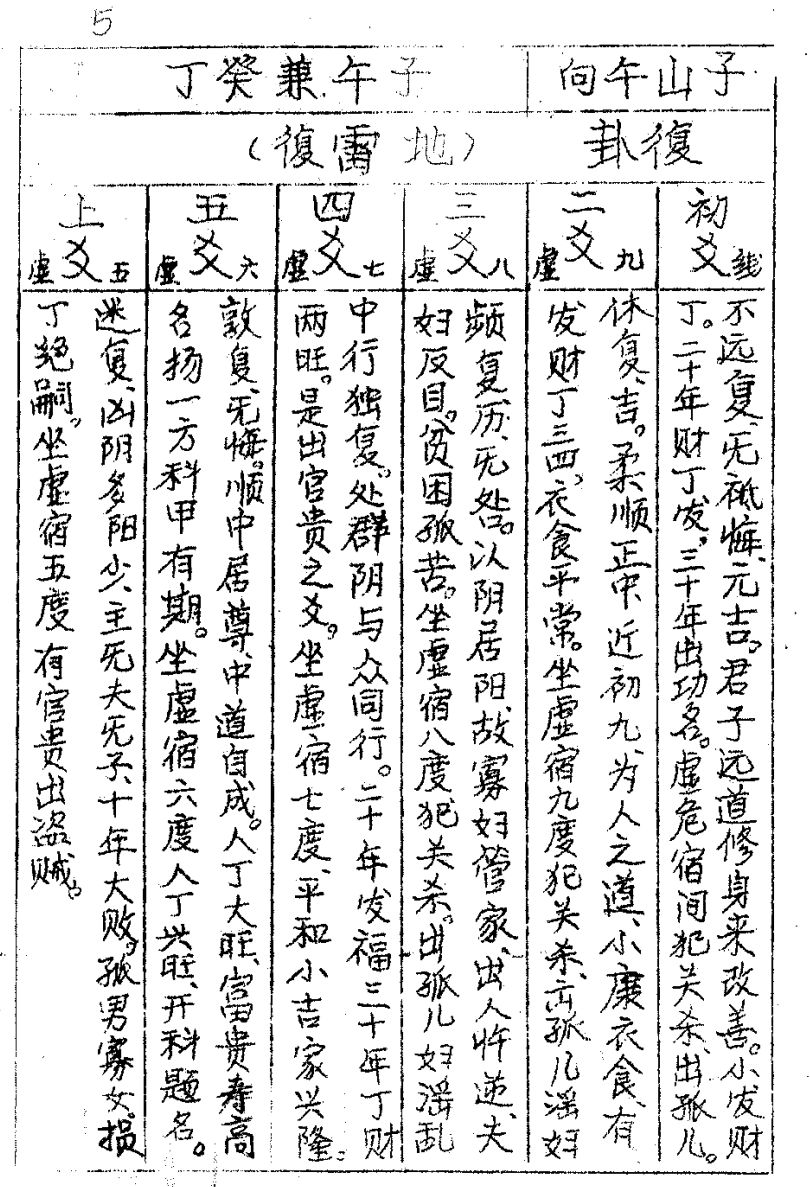 5
子山午向
子午兼癸丁
復卦
（地雷復）
初爻 线
不远复、无祗悔、元吉。君子远道修身来改善。小发财
丁。二十年财丁发，三十年出功名。虚危宿间犯关杀、出孤儿。
二爻 九虚
休复、吉。柔顺正中、近初九、为人之道、小康衣食、有
发财丁三四，衣食平常。坐虚宿九度犯关杀、出孤儿淫妇
三爻 八虚
频复、历、无咎。以阴居阳、故寡妇管家、出人忤逆、夫
妇反目。贫困孤苦。坐虚宿八度犯关杀。出孤儿妇淫乱
四爻 七虚
中行独复。处群阴与众同行。二十年发福三十年丁财
两旺。是出官贵之爻。坐虚宿七度、平和小吉家兴隆。
五爻 六虚
敦复、无悔。顺中居尊、中道自成。人丁大旺、富贵寿高
名扬一方科甲有期。坐虚宿六度人丁兴旺、开科题名。
上爻 五虚
迷复、凶阴多阳少、主无夫无子、十年大败。孤男寡女。损
丁绝嗣。坐虚宿五度有官贵出盗贼。